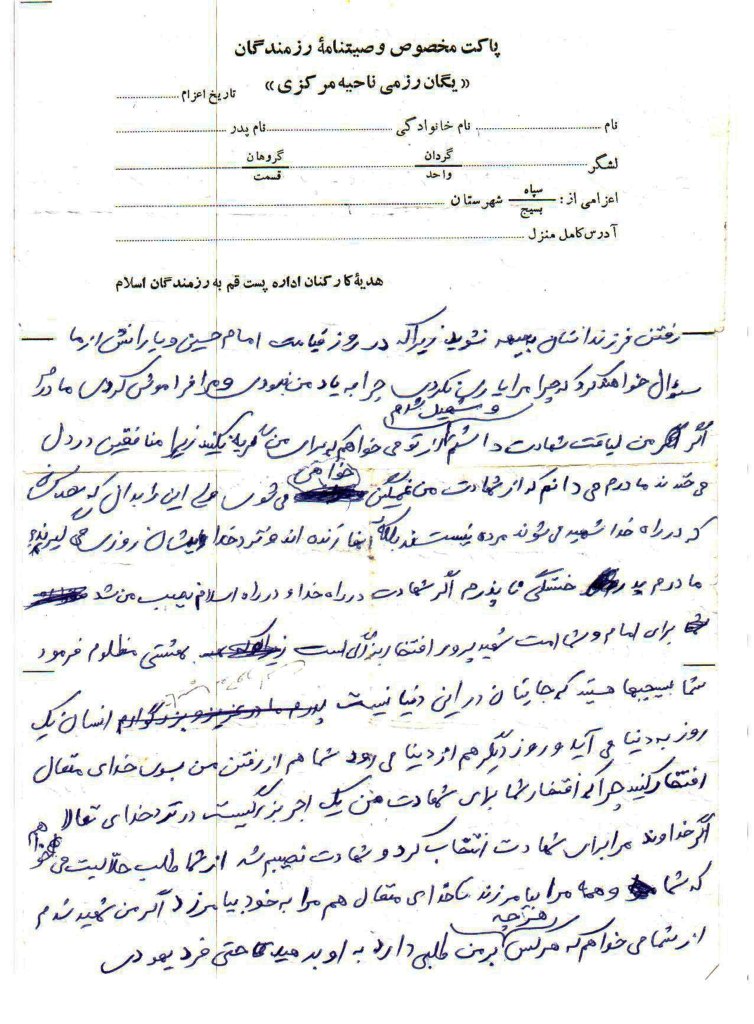 پاکت مخصوص وصیتنامهٔ رزمندگان
«یگان رزمی ناحیه مرکزی»
تاریخ اعزام
نام نام خانوادگی نام پدر
لشگر گردان واحد گروهان قسمت
اعزامی از: سپاه بسیج شهرستان
آدرس کامل منزل
هدیهٔ کارکنان اداره پست قم به رزمندگان اسلام
رفتن فرزندانتان نشوید زیرا که در روز قیامت امام حسین و یارانش از ما
سؤال خواهد کرد که چرا مرا یاری نکردی چرا به یاد من نبودی و مرا فراموش کردی مادر
و شهید شدم
اگر من لیاقت شهادت داشتم از تو می خواهم که برای من گریه نکنید زیرا منافقین در دل
می خندند مادرم می دانم که از شهادت من غمگین خواهی می شوی ولی این را بدان که
که در راه خدا شهید می شوند مرده نیستند بلکه آنها زنده اند و نزد خدا روزی می گیرند
مادرم پدر خستگی پذیرم اگر شهادت در راه خدا و در راه اسلام نصیب من شد
برای امام و شما امت شهید پرور افتخار بزرگی است بهشتی مظلوم فرمود
شما بسیجیها هستید که جایتان در این دنیا نیست پدرم مادر عزیز و بزرگوارم انسان یک
روز به دنیا می آید و روز دیگر هم از دنیا می رود شما هم از رفتن من بسوی خدای متعال
افتخار کنید چرا که افتخار شما برای شهادت من یک اجر بزرگیست در نزد خدای تعالا
اگر خداوند مرا برای شهادت انتخاب کرد و شهادت نصیبم شد از شما طلب حلالیت می خواهم
که شما و همه مرا بیامرزند تا خدای متعال هم مرا به خود بیامرزد اگر من شهید شدم
از شما می خواهم که هر کس هر چه بر من طلبی دارد به او بدهید حتی فرد یهودی